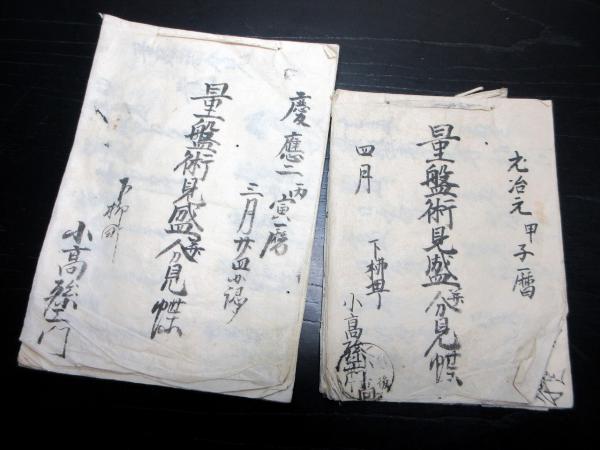 慶應二丙寅暦
三月廿四日
量盤術見盛并分見帳
下柳町
小高孫左門
元治元甲子暦
量盤術見盛并分見帳
四月
下柳町
小高孫左門